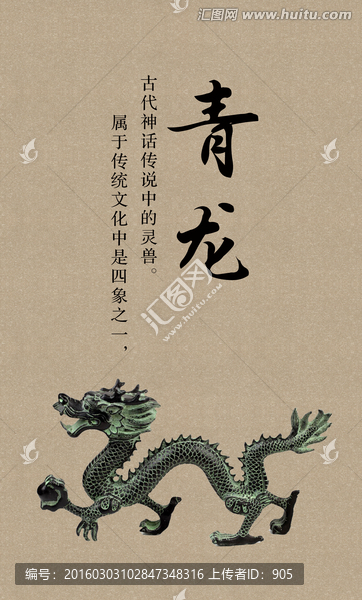 汇图网 www.huitu.com
青龙
属于传统文化中是四象之一，
古代神话传说中的灵兽。
汇图网
www.huitu.com
编号：20160303102847348316 上传者ID：905